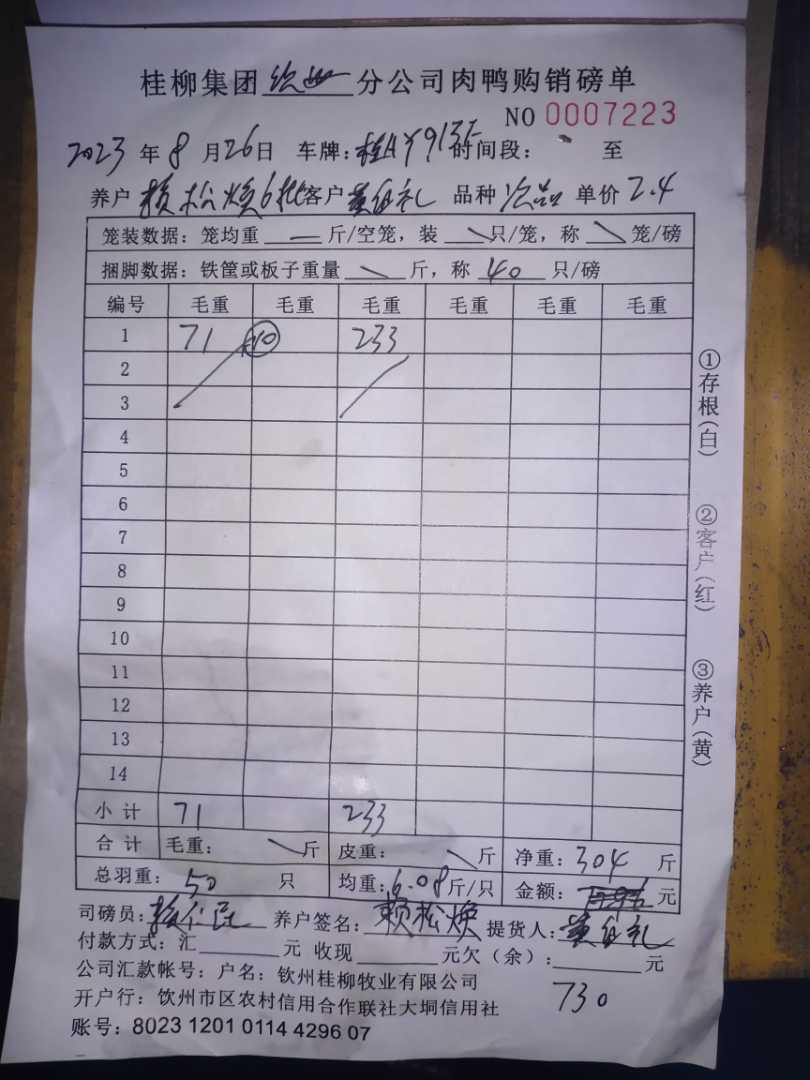 桂柳集团 钦州 分公司肉鸭购销磅单
NO 0007223
2023 年 8 月 26 日 车牌：桂A 时间段： 至
养户 赖松焕6批 客户 礼 品种 次品 单价 2.4
笼装数据：笼均重 — 斤/空笼，装 \ 只/笼，称 \ 笼/磅
捆脚数据：铁筐或板子重量 \ 斤，称 40 只/磅
编号 毛重 毛重 毛重 毛重 毛重 毛重
1 71 233
2
3
4
5
6
7
8
9
10
11
12
13
14
小计 71 233
合计 毛重： \ 斤 皮重： \ 斤 净重：304 斤
总羽重： 50 只 均重：6.08 斤/只 金额： 元
司磅员： 养户签名：赖松焕 提货人： 礼
付款方式：汇 元 收现 元欠（余）： 元
730
公司汇款帐号：户名：钦州桂柳牧业有限公司
开户行：饮州市区农村信用合作联社大垌信用社
账号：8023 1201 0114 4296 07
①存根（白）
②客户（红）
③养户（黄）